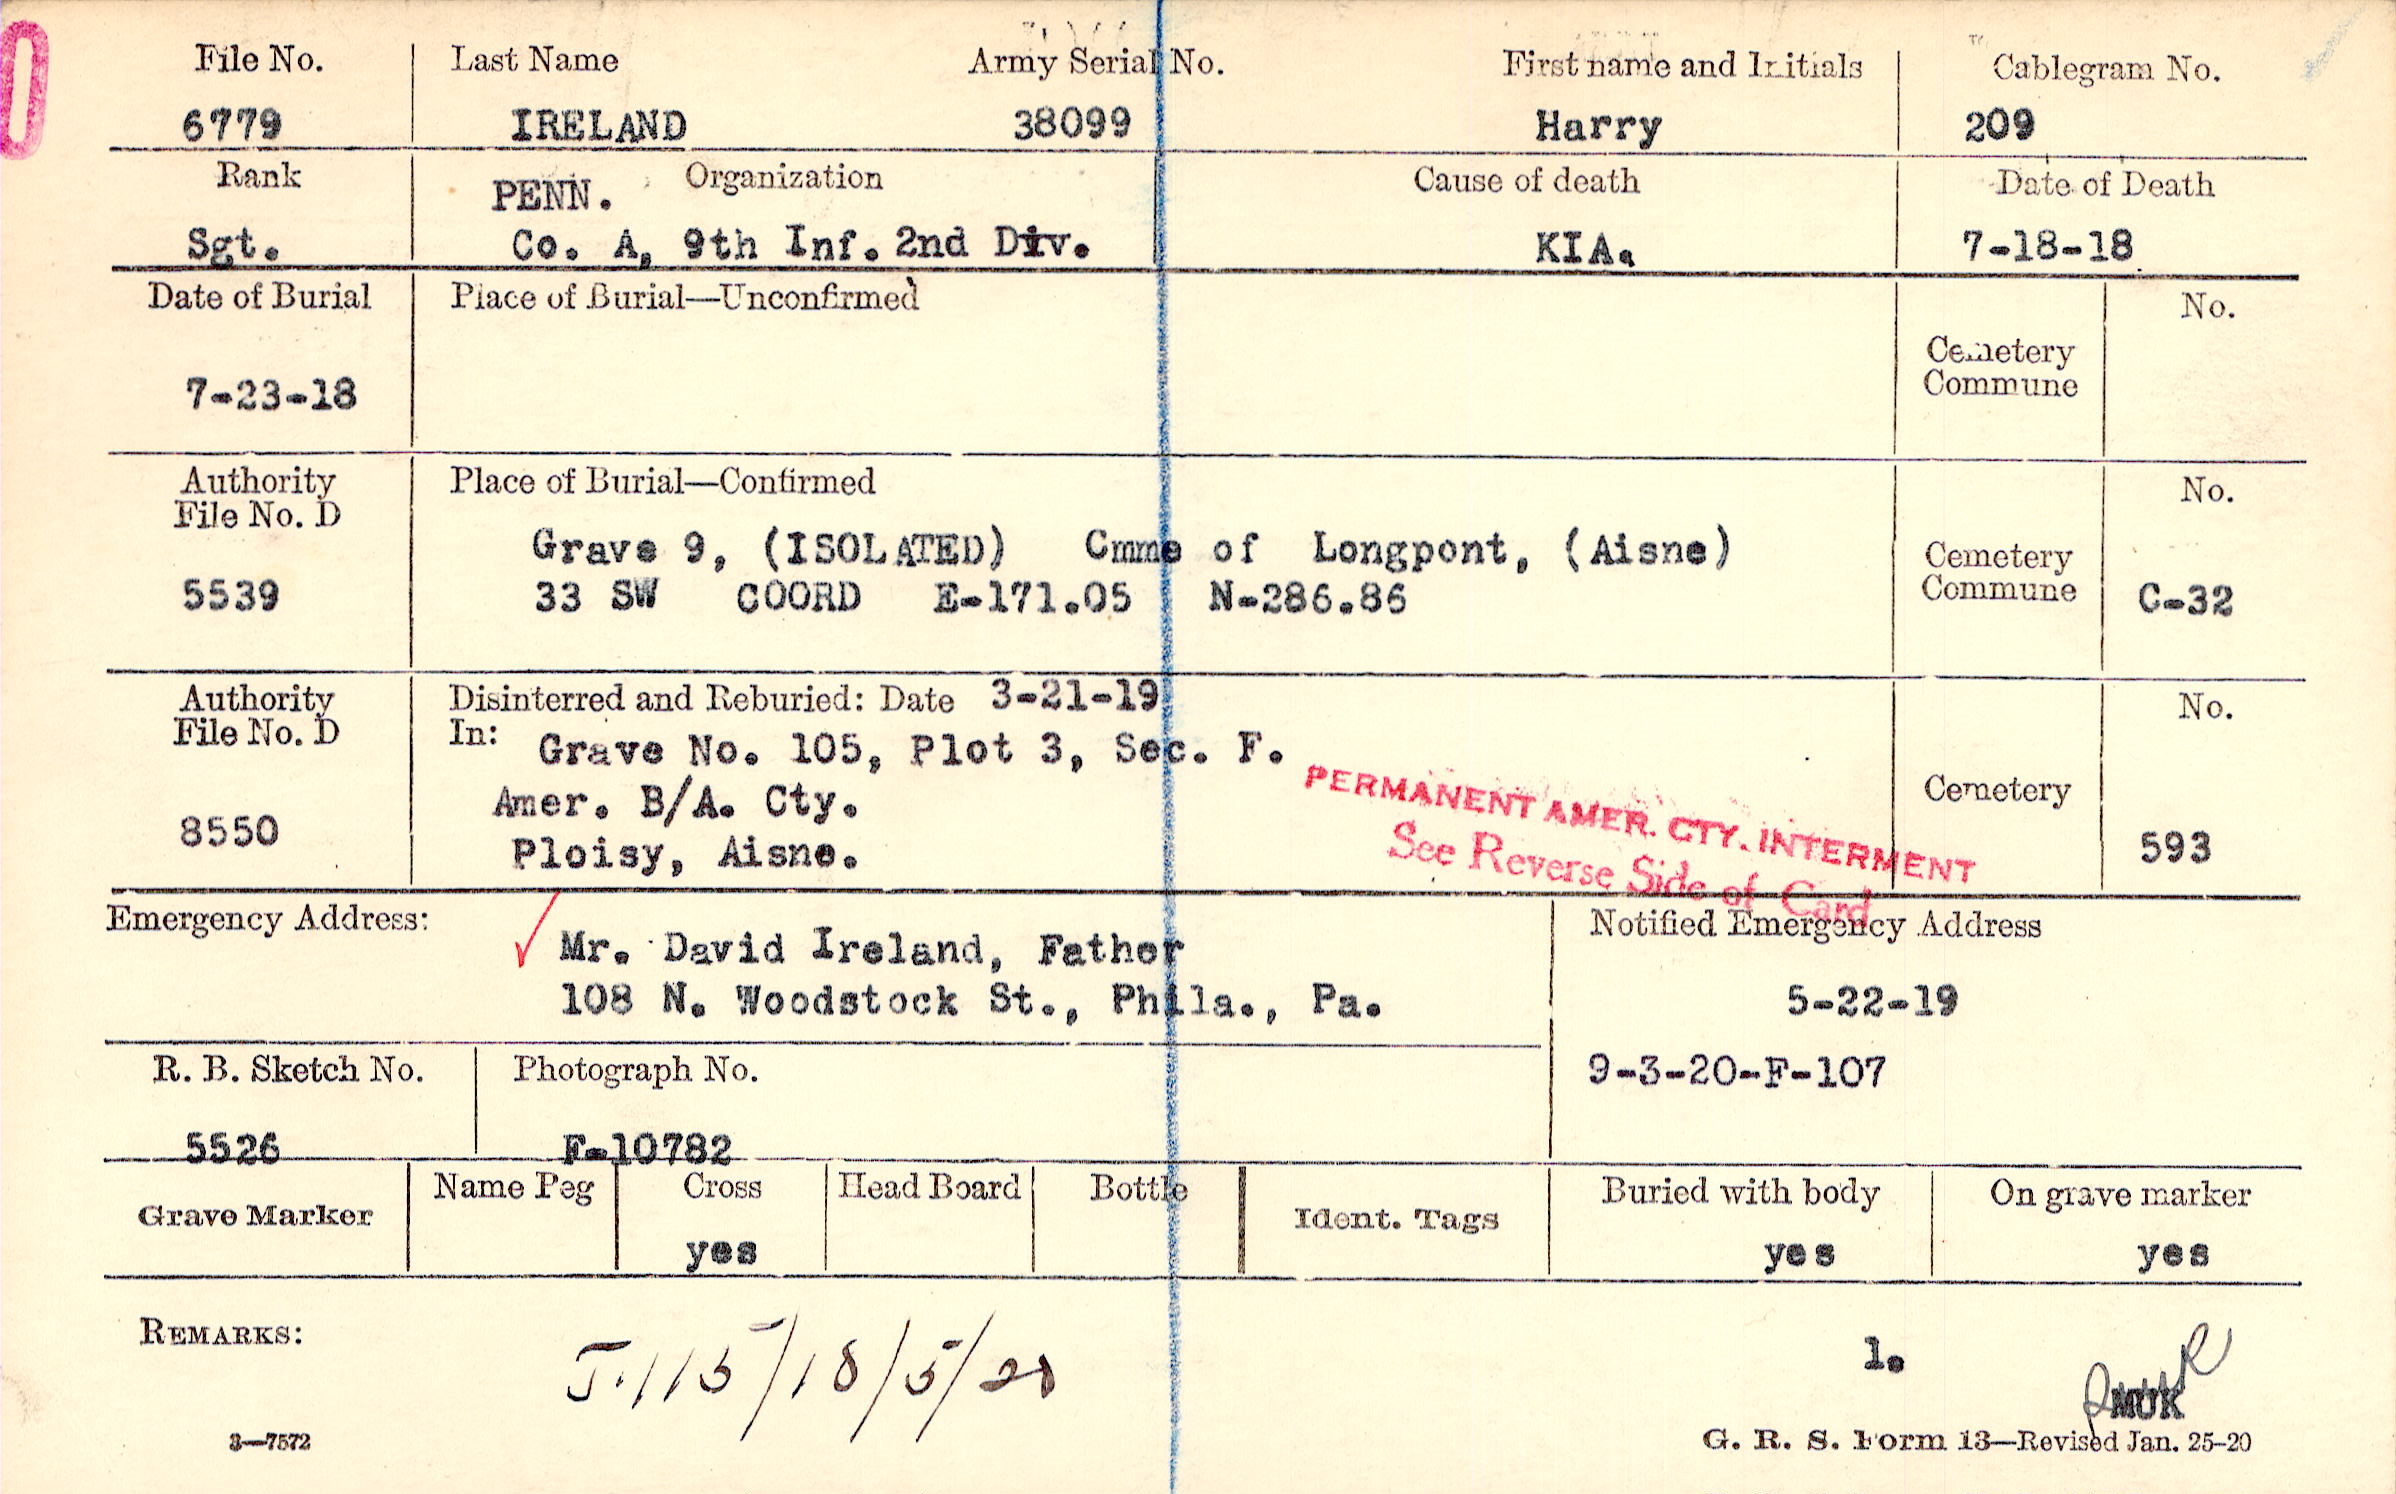 File No. Last Name Army Serial No. First name and Initials Cablegram No.
6779 IRELAND 38099 Harry 209
Rank PENN. Organization Cause of death Date of Death
Sgt. Co. A, 9th Inf. 2nd Div. KIA. 7-18-18
Date of Burial Place of Burial—Unconfirmed No.
Cemetery
Commune
7-23-18
Authority Place of Burial—Confirmed No.
File No. D
Grave 9, (ISOLATED) Cmme of Longpont, (Aisne) Cemetery
5539 33 SW COORD E-171.05 N-286.86 Commune C-32
Authority Disinterred and Reburied: Date 3-21-19 No.
File No. D In: Grave No. 105, Plot 3, Sec. F.
PERMANENT AMER. CTY. INTERMENT
See Reverse Side of Card
Amer. B/A. Cty. Cemetery
8550 Ploisy, Aisne. 593
Emergency Address: Notified Emergency Address
Mr. David Ireland, Father
108 N. Woodstock St., Phila., Pa. 5-22-19
R. B. Sketch No. Photograph No. 9-3-20-F-107
5526 F-10782
Grave Marker Name Peg Cross Head Board Bottle Ident. Tags Buried with body On grave marker
yes yes yes
REMARKS: 1.
MUK
3—7572 G. R. S. Form 13—Revised Jan. 25-20